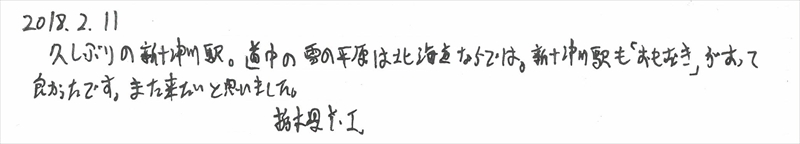 2018.2.11
久しぶりの新十津川駅。道中の雪の平原は北海道ならでは。新十津川駅も「おもむき」があって
良かったです。また来たいと思いました。
栃木県